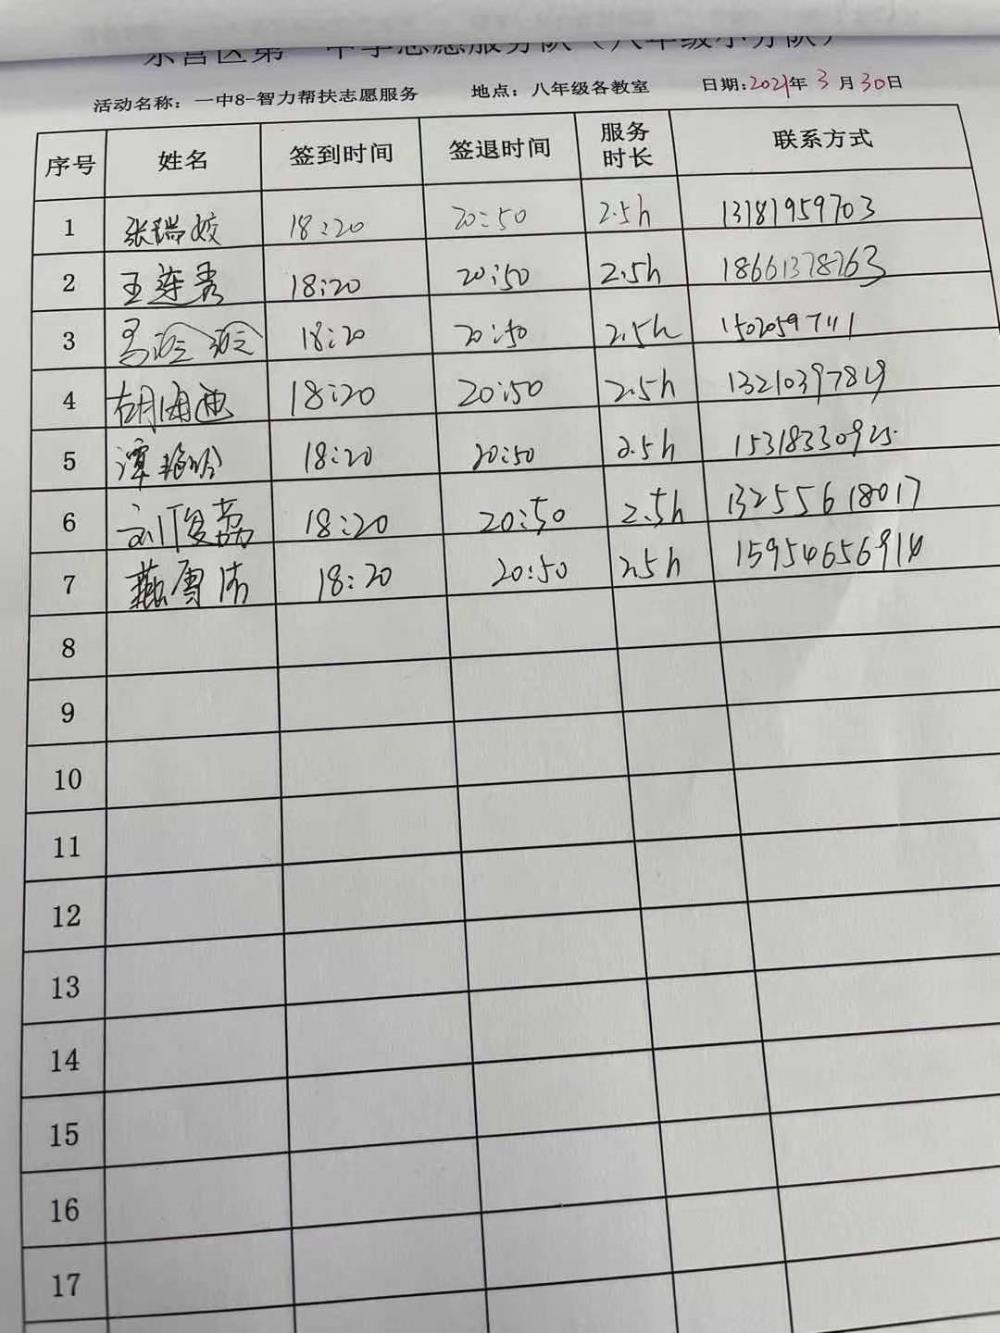 东营区第一中学志愿服务队（八年级小分队）
活动名称：一中8-智力帮扶志愿服务 地点：八年级各教室 日期:2021年 3 月 30日
序号 姓名 签到时间 签退时间 服务时长 联系方式
1 张瑞姣 18:20 20:50 2.5h 13181959703
2 王莲秀 18:20 20:50 2.5h 18661378763
3 18:20 20:50 2.5h
4 胡海迪 18:20 20:50 2.5h 13210397819
5 谭 18:20 20:50 2.5h 15318330925
6 刘俊荔 18:20 20:50 2.5h 13255618017
7 燕雪洁 18:20 20:50 2.5h 15954656914
8
9
10
11
12
13
14
15
16
17